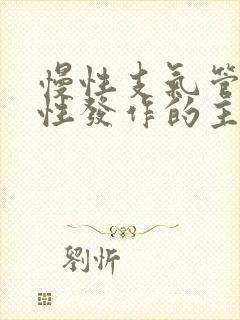 慢性支氣管
性發作的主
劉忻